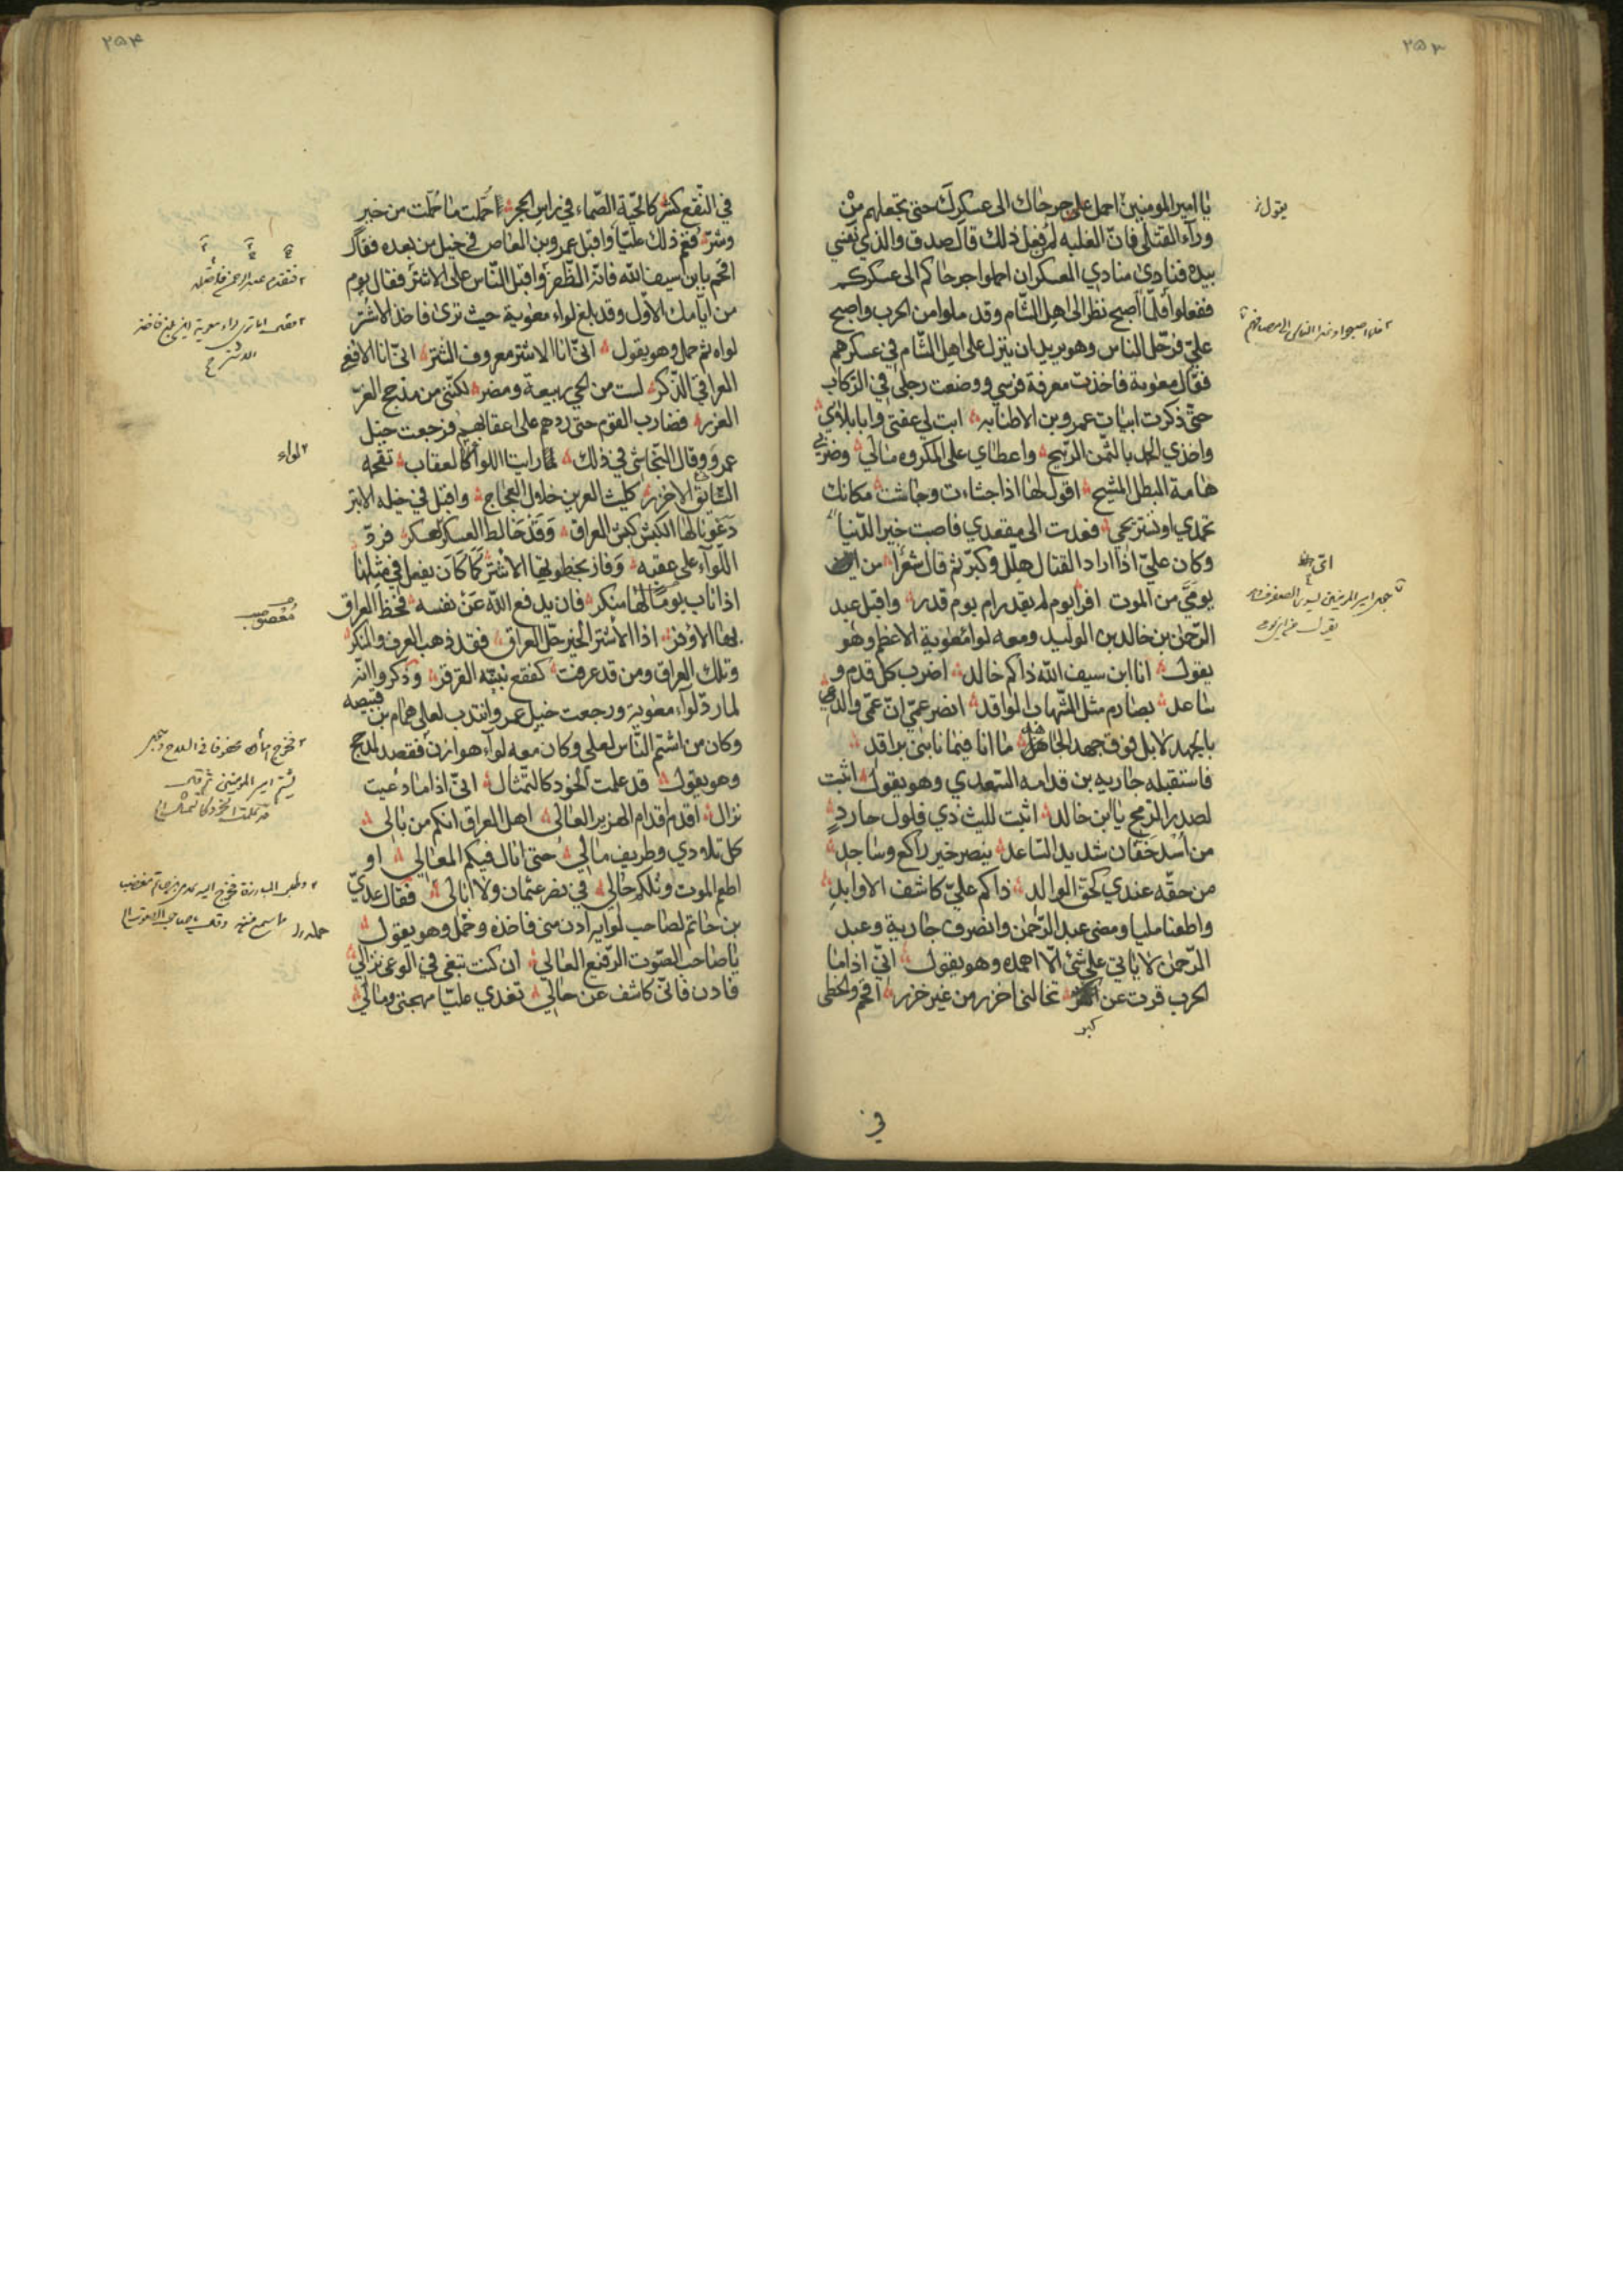 ٢٥٣
يا امير المومنين احمل على جرحاك الى عسكرك حتى تجعلهم من
ورآء القتلى فانّ الغلبه لمن فعل ذلك قال صدق والذي نفسي
بيده فنادى منادي العسكر ان احملوا جرحاكم الى عسكركم
ففعلوا فلمّا اصبح نظر الى اهل الشام وقد ملوا من الحرب واصبح
عليّ فرحّل الناس وهو يريد ان ينزل على اهل الشام في عسكرهم
فقال معوية فاخذت معرفة فرسي ووضعت رجلي في الركاب
حتى ذكرت ابيات عمرو بن الاطنابه ابت لي عفتي وابا بلائي
واخذي الحمد بالثمن الربيح واعطاي على المكروه مالي وضربي
هامة البطل المشيح اقول لها اذا جشاءت وجاشت مكانك
تحمدي او تستريحي فعدت الى مقعدي فاصبت خير الدنيا
وكان عليّ اذا اراد القتال هلّل وكبّر ثم قال شعرًا من
يوميّ من الموت افر ايوم لم يقدر ام يوم قدر واقبل عبد
الرحمن بن خالد بن الوليد ومعه لوا معوية الاعظم وهو
يقول انا ابن سيف الله ذاكم خالد اضرب كل قدم و
ساعد بصارم مثل الشهاب الواقد انصر عمّي انّ عمّي والدي
بالجهد لا بل فوق جهد الجاهد ما انا فيما نابني براقد
فاستقبله جاريه بن قدامه السعدي وهو يقول اثبت
لصدر الرمح يا ابن خالد اثبت لليث ذي فلول حارد
من اسد خفان شديد الساعد ينصر خير راكع وساجد
من حقّه عندي كحق الوالد ذاكم عليّ كاشف الاوابد
واطعنا مليا ومضى عبد الرحمن وانصرف جارية وعبد
الرحمن لا ياتي على شئ الّا اهمده وهو يقول انّي اذا ما
الحرب قرت عن كبر تخالني اخزر من غير خزر اقحم والخطى
في
يقول
٢٥٤
في النقع كشر كالحيّة الصّماء في راس الحجر احمل ما حملت من خير
وشرّ فغم ذلك عليّا واقبل عمرو بن العاص في خيل من بعده فقال
اقحم يا بن سيف الله فانّه الظفر واقبل الناس على الاشتر فقال يوم
من ايّامك الاول وقد بلغ لواء معوية حيث ترى فاخذ الاشتر
لواه ثم حمل وهو يقول انّي انا الاشتر معروف الشتر انّي انا الافعى
العراقي الذكر لست من الحي ربيعة ومضر لكنّني من مذحج الغر
الغرر فضارب القوم حتى ردهم على اعقابهم فرجعت خيل
عمرو وقال النجاشي في ذلك لما رايت اللوا كالعقاب تقحمه
الشانئ الاخزر كليث العرين خلال العجاج واقبل في خيله الابتر
دعونا لها الكبش كبش العراق وقد خالط العسكر العسكر فردّ
اللوآء على عقبه وفاز بحظوتها الاشتر كما كان يفعل في مثلها
اذا ناب يومًا لها منكر فان يدفع الله عن نفسه فحظ العراق
بها الاوفر اذا الاشتر الخير خلّ العراق فقد ذهب العرف والمنكر
وتلك العراق ومن قد عرفت كفقع نبته القرقر وذكروا انّه
لما ردّ لوآء معوية ورجعت خيل عمرو انتدب لعلي همام بن قبيصه
وكان من اشتم الناس لعلي وكان معه لوآء هوازن فقصد لمذحج
وهو يقول قد علمت الخود كالتمثال انّي اذا ما دعيت
نزال اقدم اقدام الهزبر العالي اهل العراق انكم من بالي
كل تلادي وطريف مالي حتى انال فيكم المعالي او
اطعم الموت وتلكم حالي في نصر عثمان ولا ابالي فقال عديّ
بن حاتم لصاحب لوايه ادن مني فاخذه وحمل وهو يقول
يا صاحب الصّوت الرفيع العالي ان كنت تبغي في الوغى نزالي
فادن فانّي كاشف عن حالي تفدي عليّا مهجتي ومالي
لواء